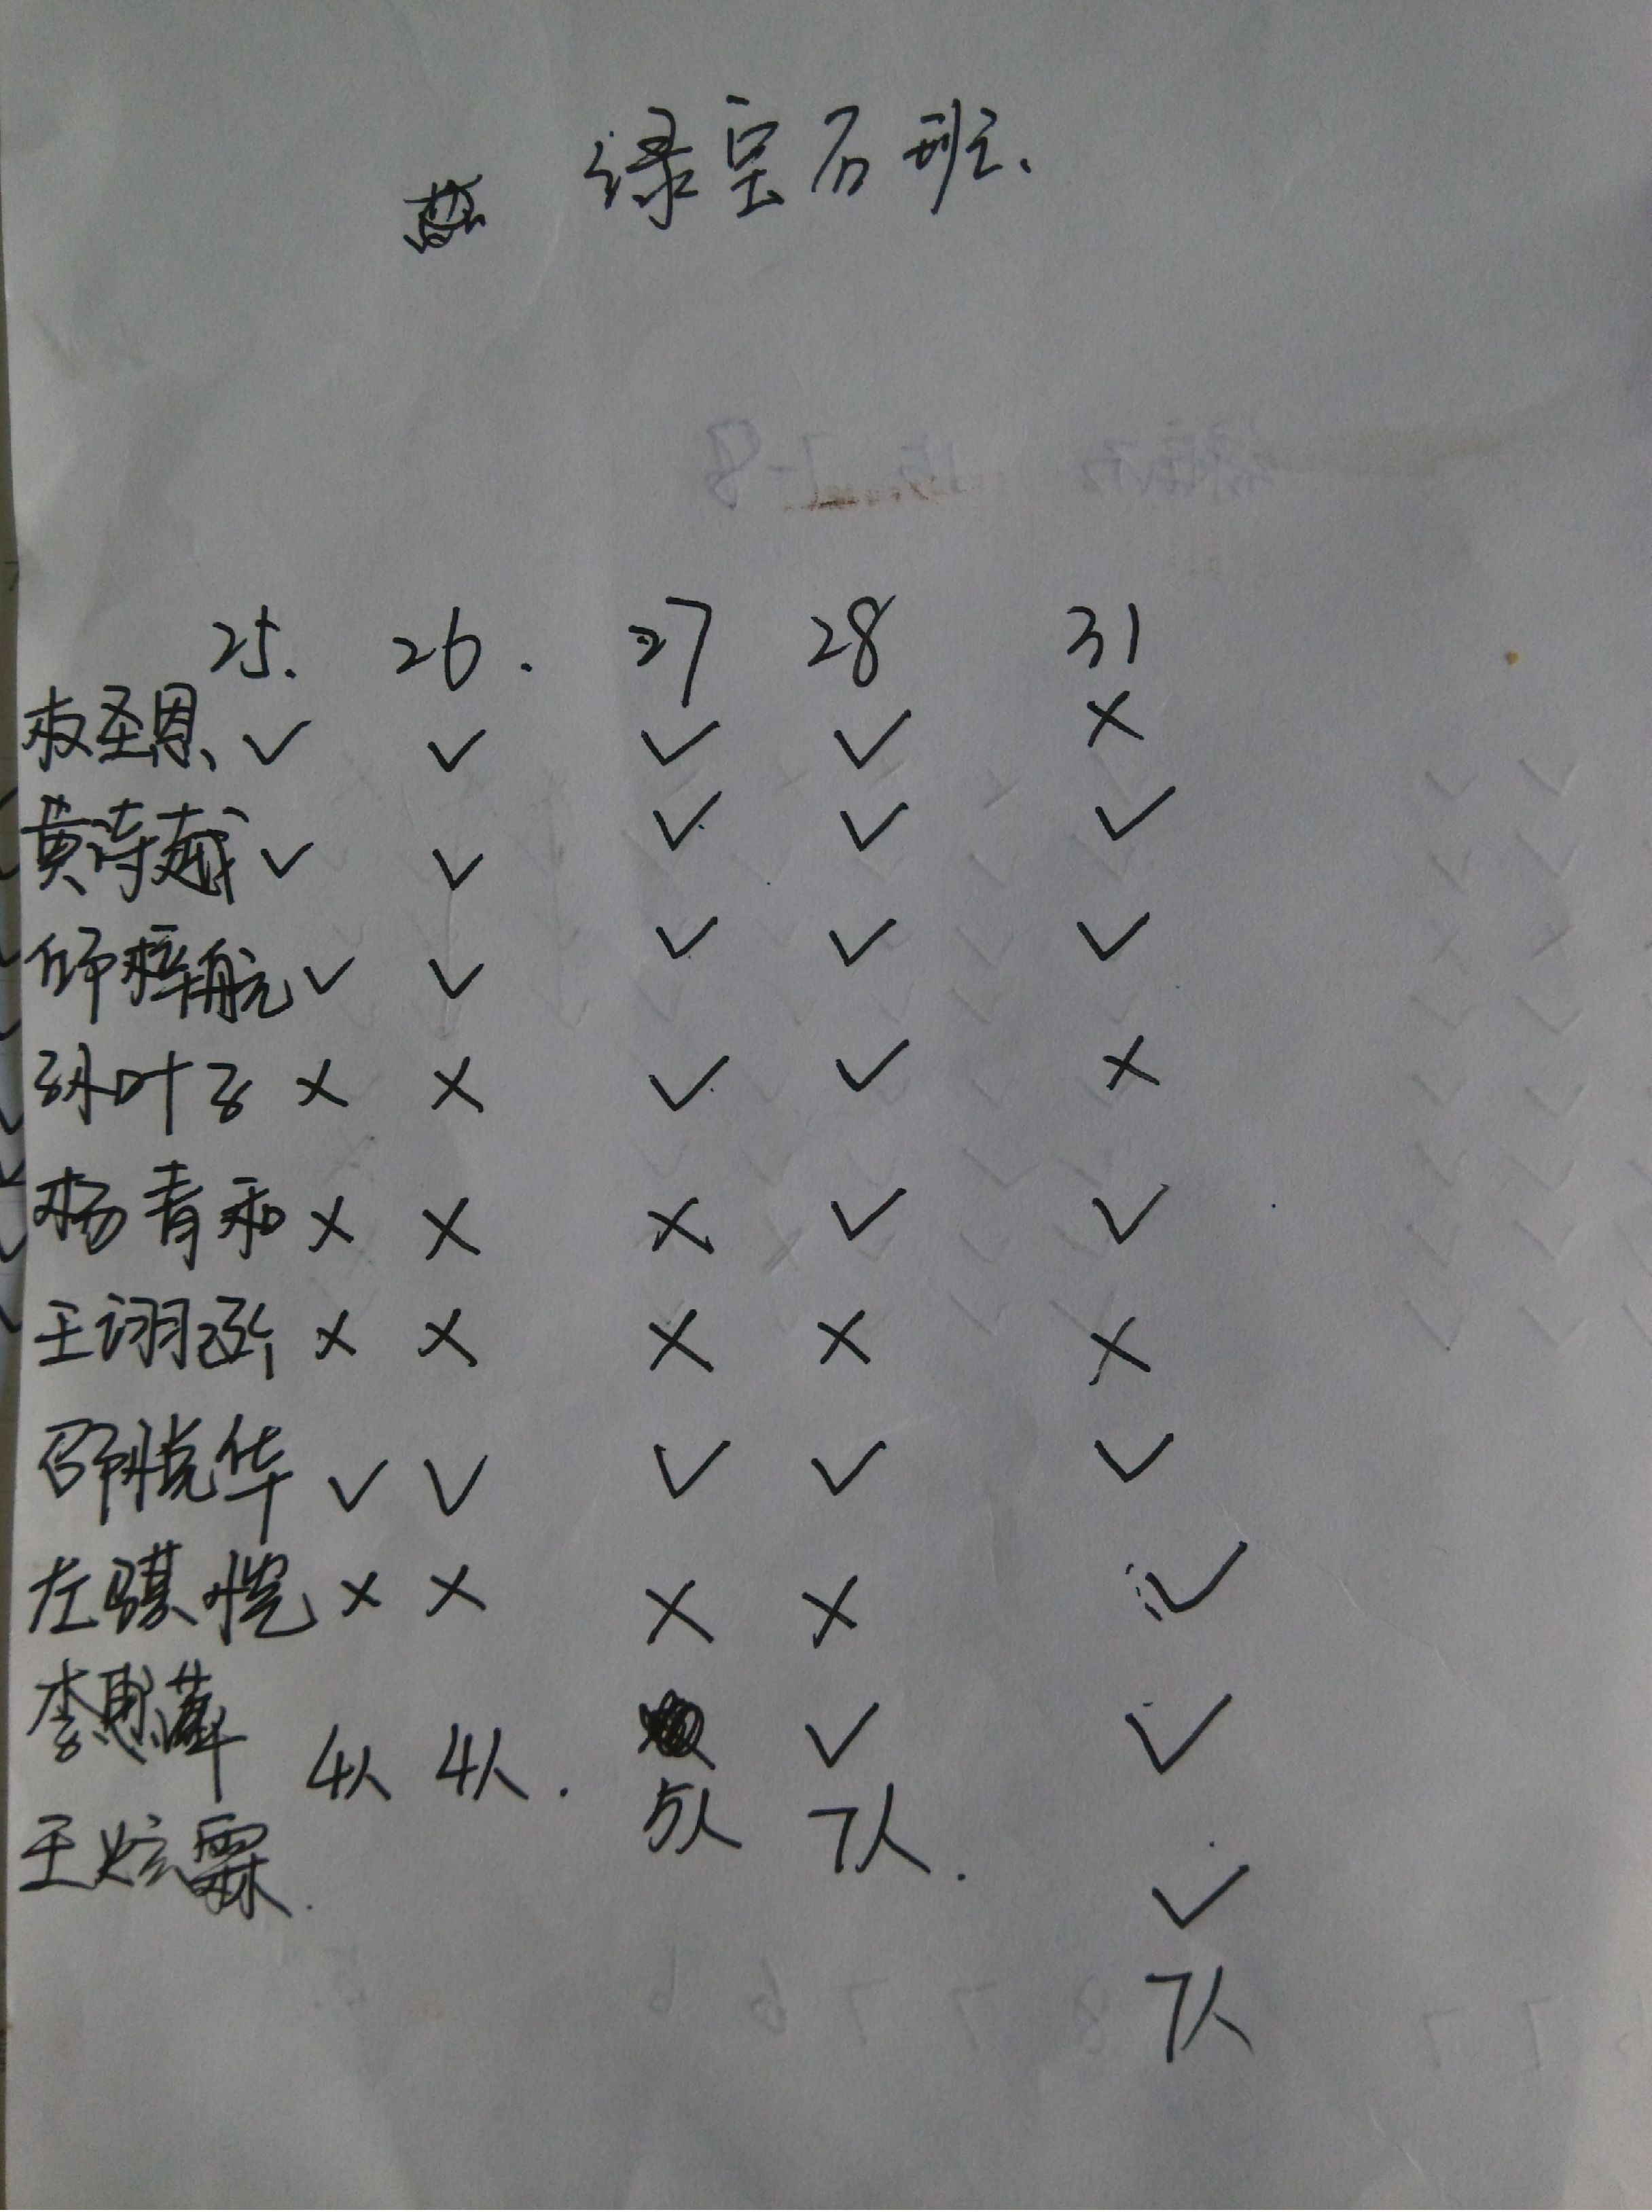 绿宝石班.
25. 26. 27 28 31
圣恩 ✓ ✓ ✓ ✓ ×
黄诗越 ✓ ✓ ✓ ✓ ✓
师梓航 ✓ ✓ ✓ ✓ ✓
孙叶子 × × ✓ ✓ ×
杨青和 × × × ✓ ✓
王诩丞 × × × × ×
邵悦华 ✓ ✓ ✓ ✓ ✓
左骐恺 × × × × ✓
李思 ✓ ✓
4人 4人. 5人 7人.
王炫霖. ✓
7人